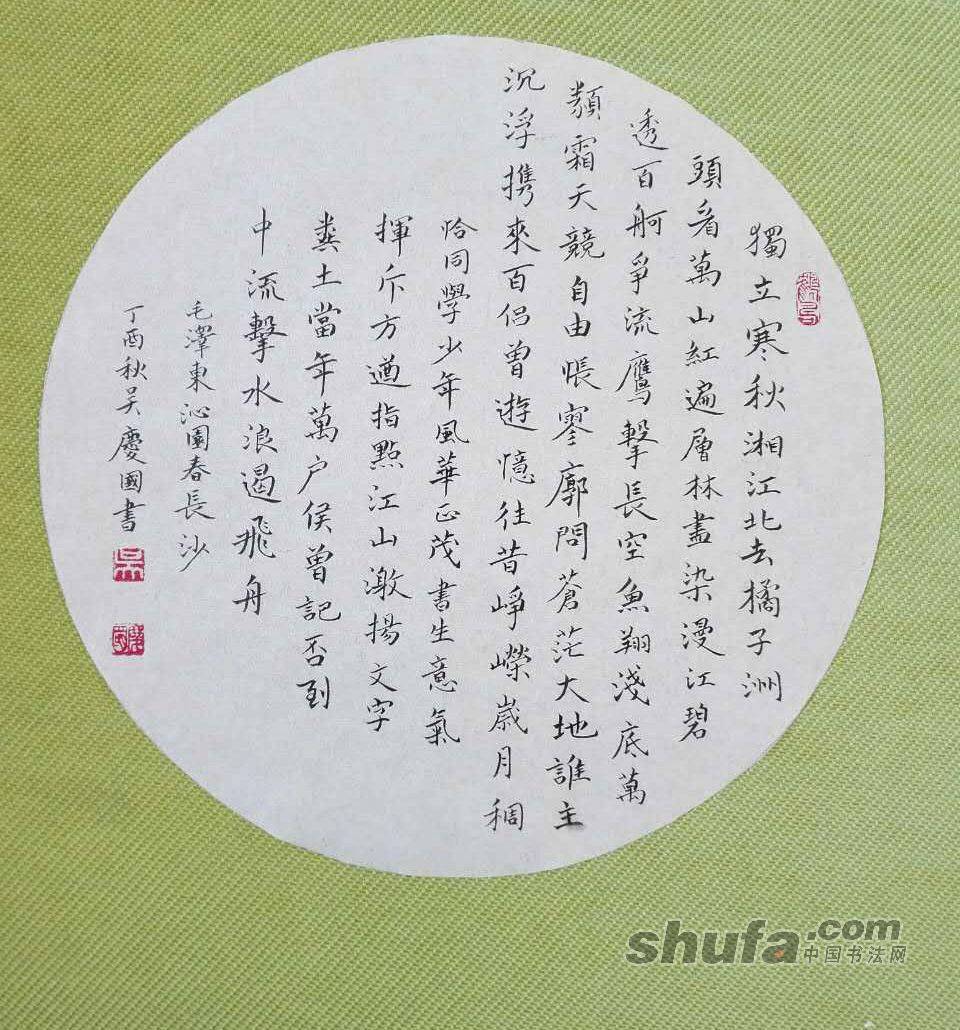 獨立寒秋湘江北去橘子洲
頭看萬山紅遍層林盡染漫江碧
透百舸爭流鷹擊長空魚翔淺底萬
類霜天競自由悵寥廓問蒼茫大地誰主
沉浮携來百侶曾遊憶往昔崢嶸歲月稠
恰同學少年風華正茂書生意氣
揮斥方遒指點江山激揚文字
糞土當年萬户侯曾記否到
中流擊水浪遏飛舟
毛澤東沁園春長沙
丁酉秋吴慶國書
吴
慶國
shufa.com
中国书法网